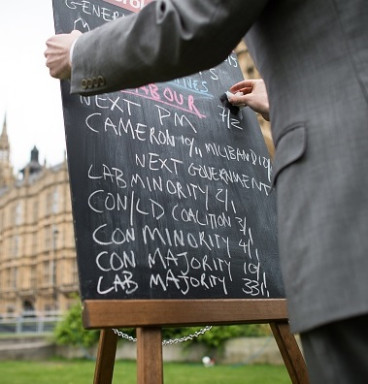 GENER
LABOUR 7/2
NEXT PM
CAMERON 10/11 MILIBAND 12/
NEXT GOVERNMENT
LAB MINORITY 2/1
CON/LD COALITION 3/1
CON MINORITY 4/1
CON MAJORITY 10/1
LAB MAJORITY 33/1